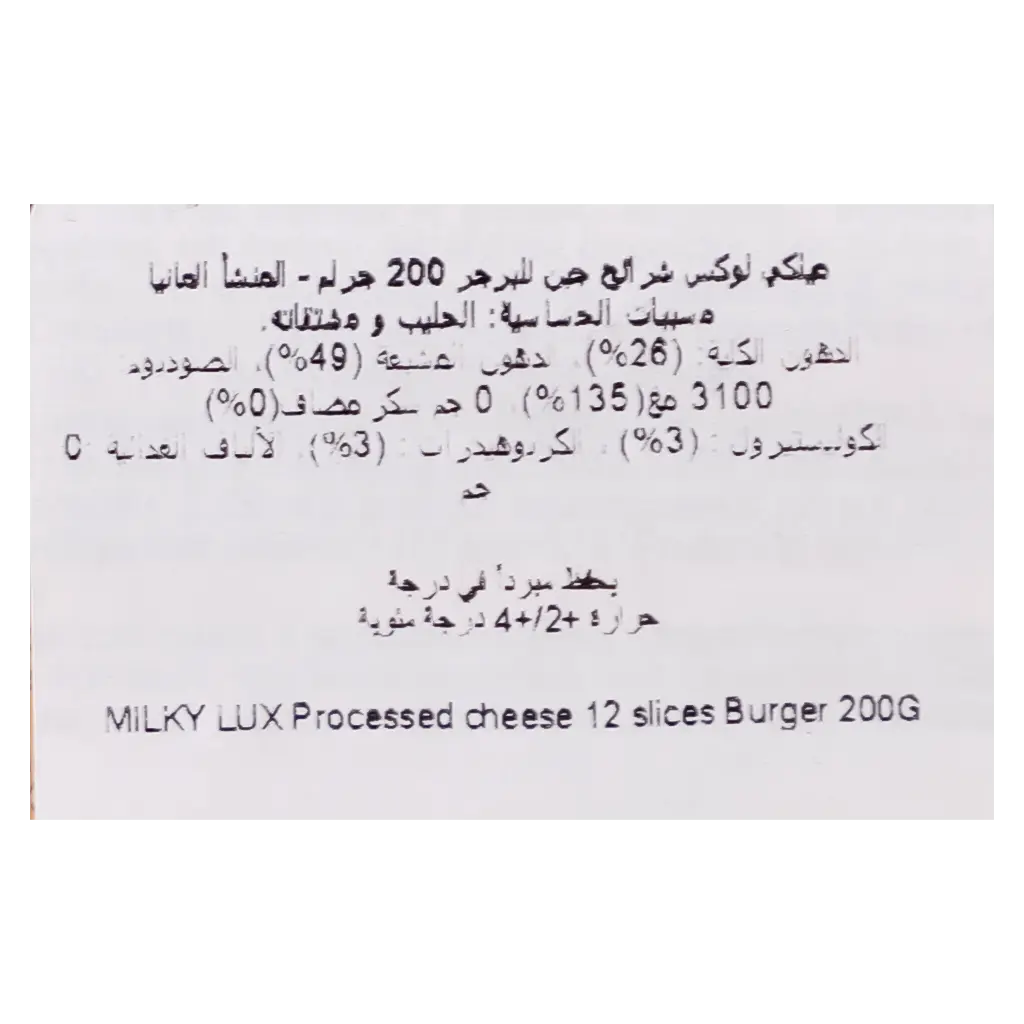 ميلكي لوكس شرائح جبن للبرجر 200 جرام - المنشأ ألمانيا
مسببات الحساسية: الحليب و مشتقاته.
الدهون الكلية: (26%)، الدهون المشبعة (49%)، الصوديوم
3100 مغ(135%)، 0 جم سكر مضاف(0%)
الكوليسترول: (3%)، الكربوهيدرات: (3%)، الألياف الغذائية 0
جم
يحفظ مبرداً في درجة
حرارة +2/+4 درجة مئوية
MILKY LUX Processed cheese 12 slices Burger 200G